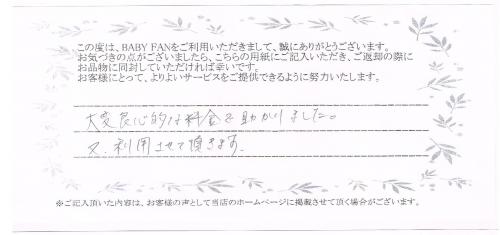 この度は、BABY FANをご利用いただきまして、誠にありがとうございます。
お気づきの点がございましたら、こちらの用紙にご記入いただき、ご返却の際に
お品物に同封していただければ幸いです。
お客様にとって、よりよいサービスをご提供できるように努力いたします。
大変良心的な料金で助かりました。
又、利用させて頂きます。
※ご記入頂いた内容は、お客様の声として当店のホームページに掲載させて頂く場合がございます。